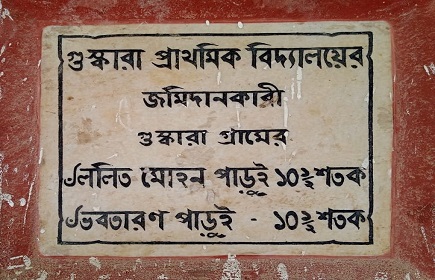 গুস্করা প্রাথমিক বিদ্যালয়ের
জমিদানকারী
গুস্কারা গ্রামের
৺ললিত মোহন পাড়ুই ১০½ শতক
৺ভবতারণ পাড়ুই - ১০½ শতক